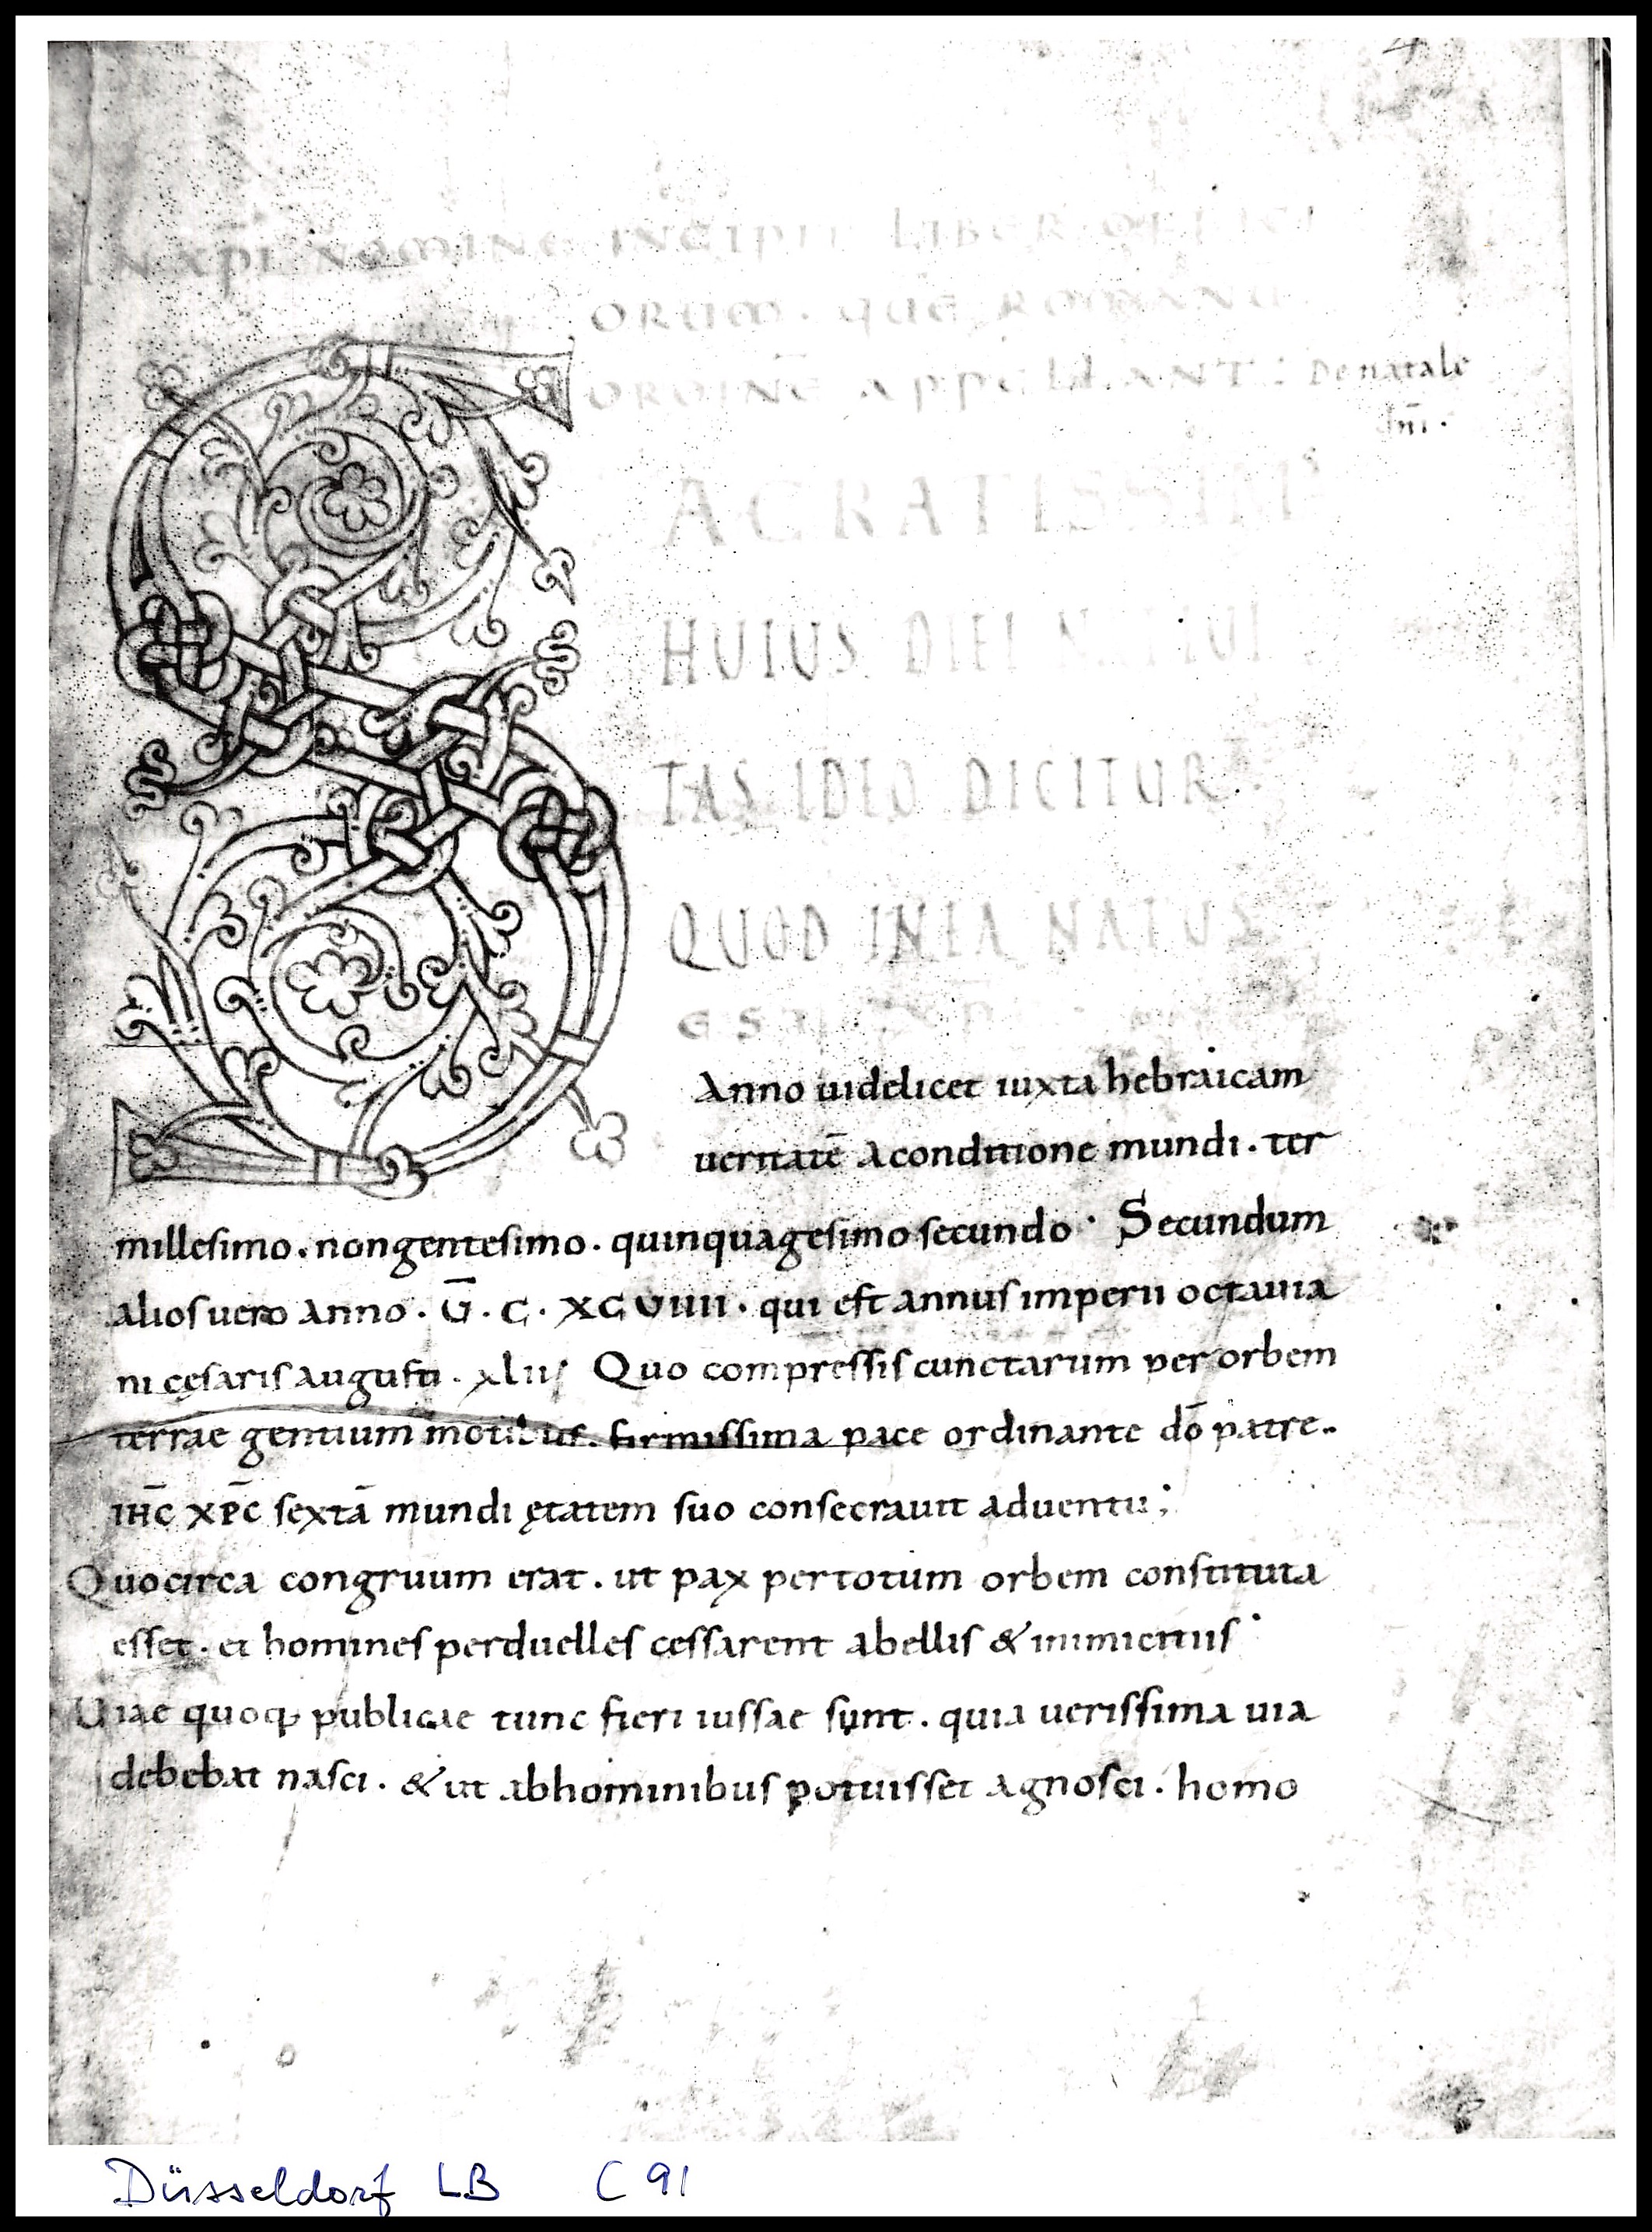 IN XP̄I NOMINE INCIPIT LIBER OFFICI
ORUM . QUE ROMANO
ORDINE APPELLANT : De natale
dn̄i .
SACRATISSIM
HUIUS DIEI
TAS IDEO DICITUR
QUOD IN EA NATUS
EST
Anno uidelicet iuxta hebraicam
ueritatē a conditione mundi . ter
millesimo . nongentesimo . quinquagesimo secundo · Secundum
alios uero anno . V̄ . C . XCVIIII . qui est annus imperii octauia
ni cęsaris augusti . xlii Quo compressis cunctarum per orbem
terrae gentium motibus . firmissima pace ordinante dō patre .
IHC̄ XPC̄ sextā mundi ętatem suo consecrauit aduentu ;
Quocirca congruum erat . ut pax per totum orbem constituta
esset . et homines perduelles cessarent a bellis & inimicitiis ·
Viae quoq; publicae tunc fieri iussae sunt . quia uerissima uia
debebat nasci . & ut ab hominibus potuisset agnosci . homo
Düsseldorf LB C 91